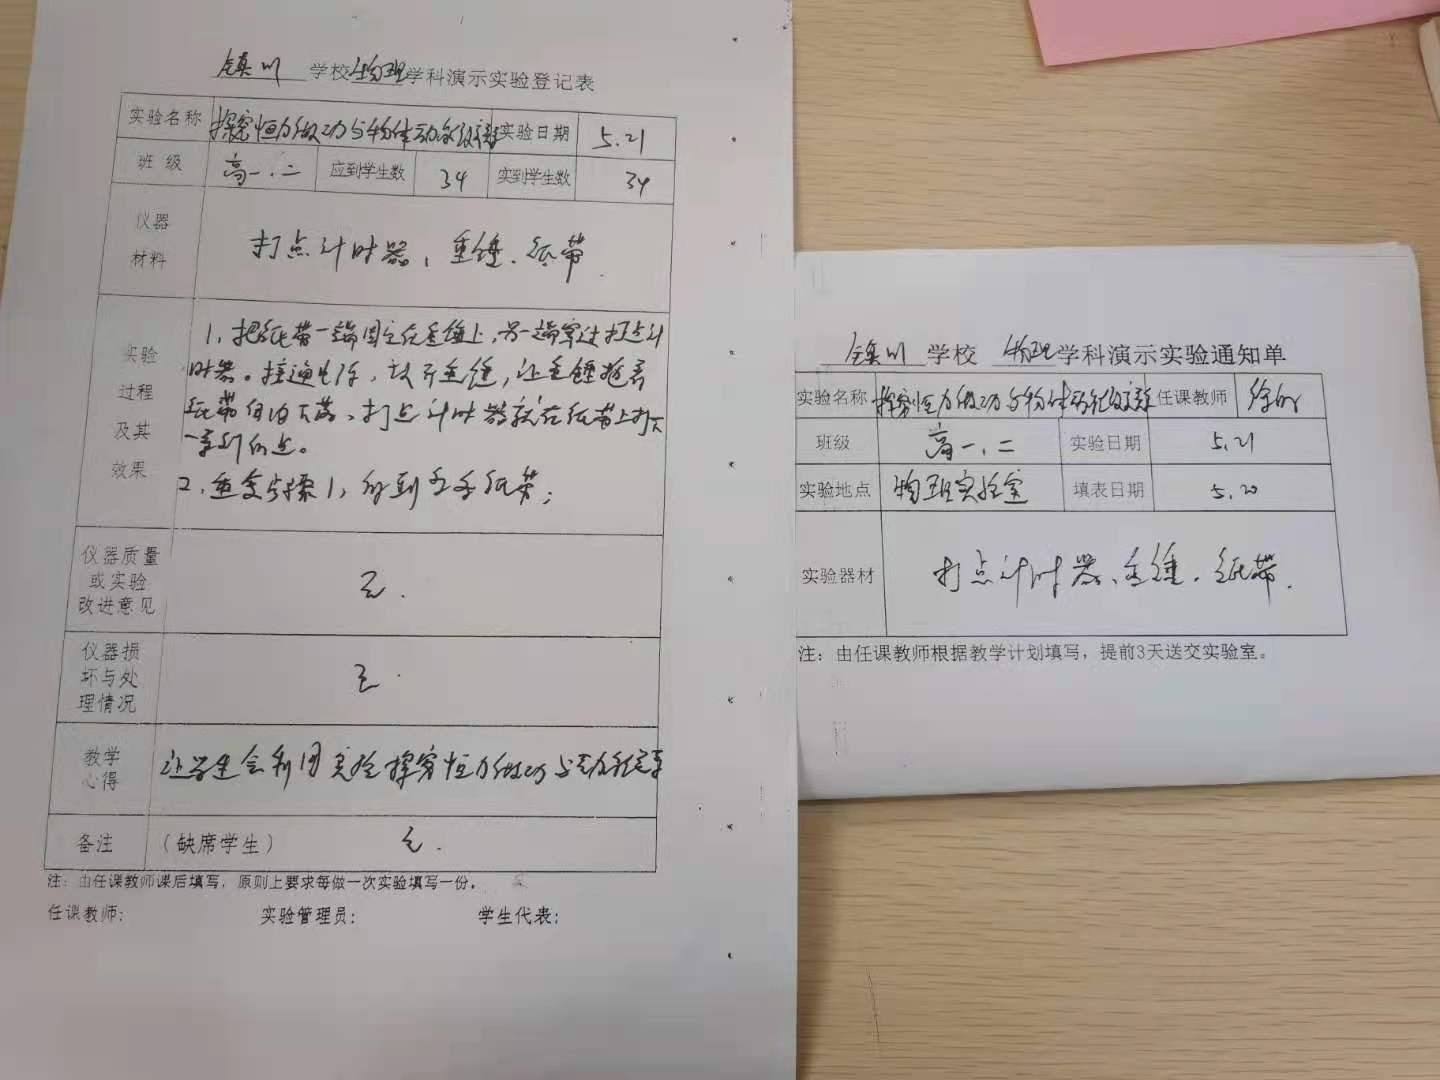 镇川学校物理学科演示实验登记表
实验名称 探究恒力做功与物体动能改变 实验日期 5.21
班 级 高一.二 应到学生数 34 实到学生数 34
仪器
材料
打点计时器、重锤.纸带.
实验
过程
及其
效果
1、把纸带一端固定在重锤上,另一端穿过打点计
时器。接通电源,放开重锤,让重锤拖着
纸带自由下落、打点计时器就在纸带上打下
一系列的点。
2、重复步骤1,得到多条纸带;
仪器质量
或实验
改进意见
无.
仪器损
坏与处
理情况
无.
教学
心得
让学生会利用实验探究恒力做功与动能
备注 (缺席学生) 无.
注:由任课教师课后填写,原则上要求每做一次实验填写一份。
任课教师: 实验管理员: 学生代表:
镇川学校 物理学科演示实验通知单
实验名称 探究恒力做功与物体动能改变 任课教师
班级 高一.二 实验日期 5.21
实验地点 物理实验室 填表日期 5.20
实验器材 打点计时器、重锤.纸带.
注:由任课教师根据教学计划填写,提前3天送交实验室。